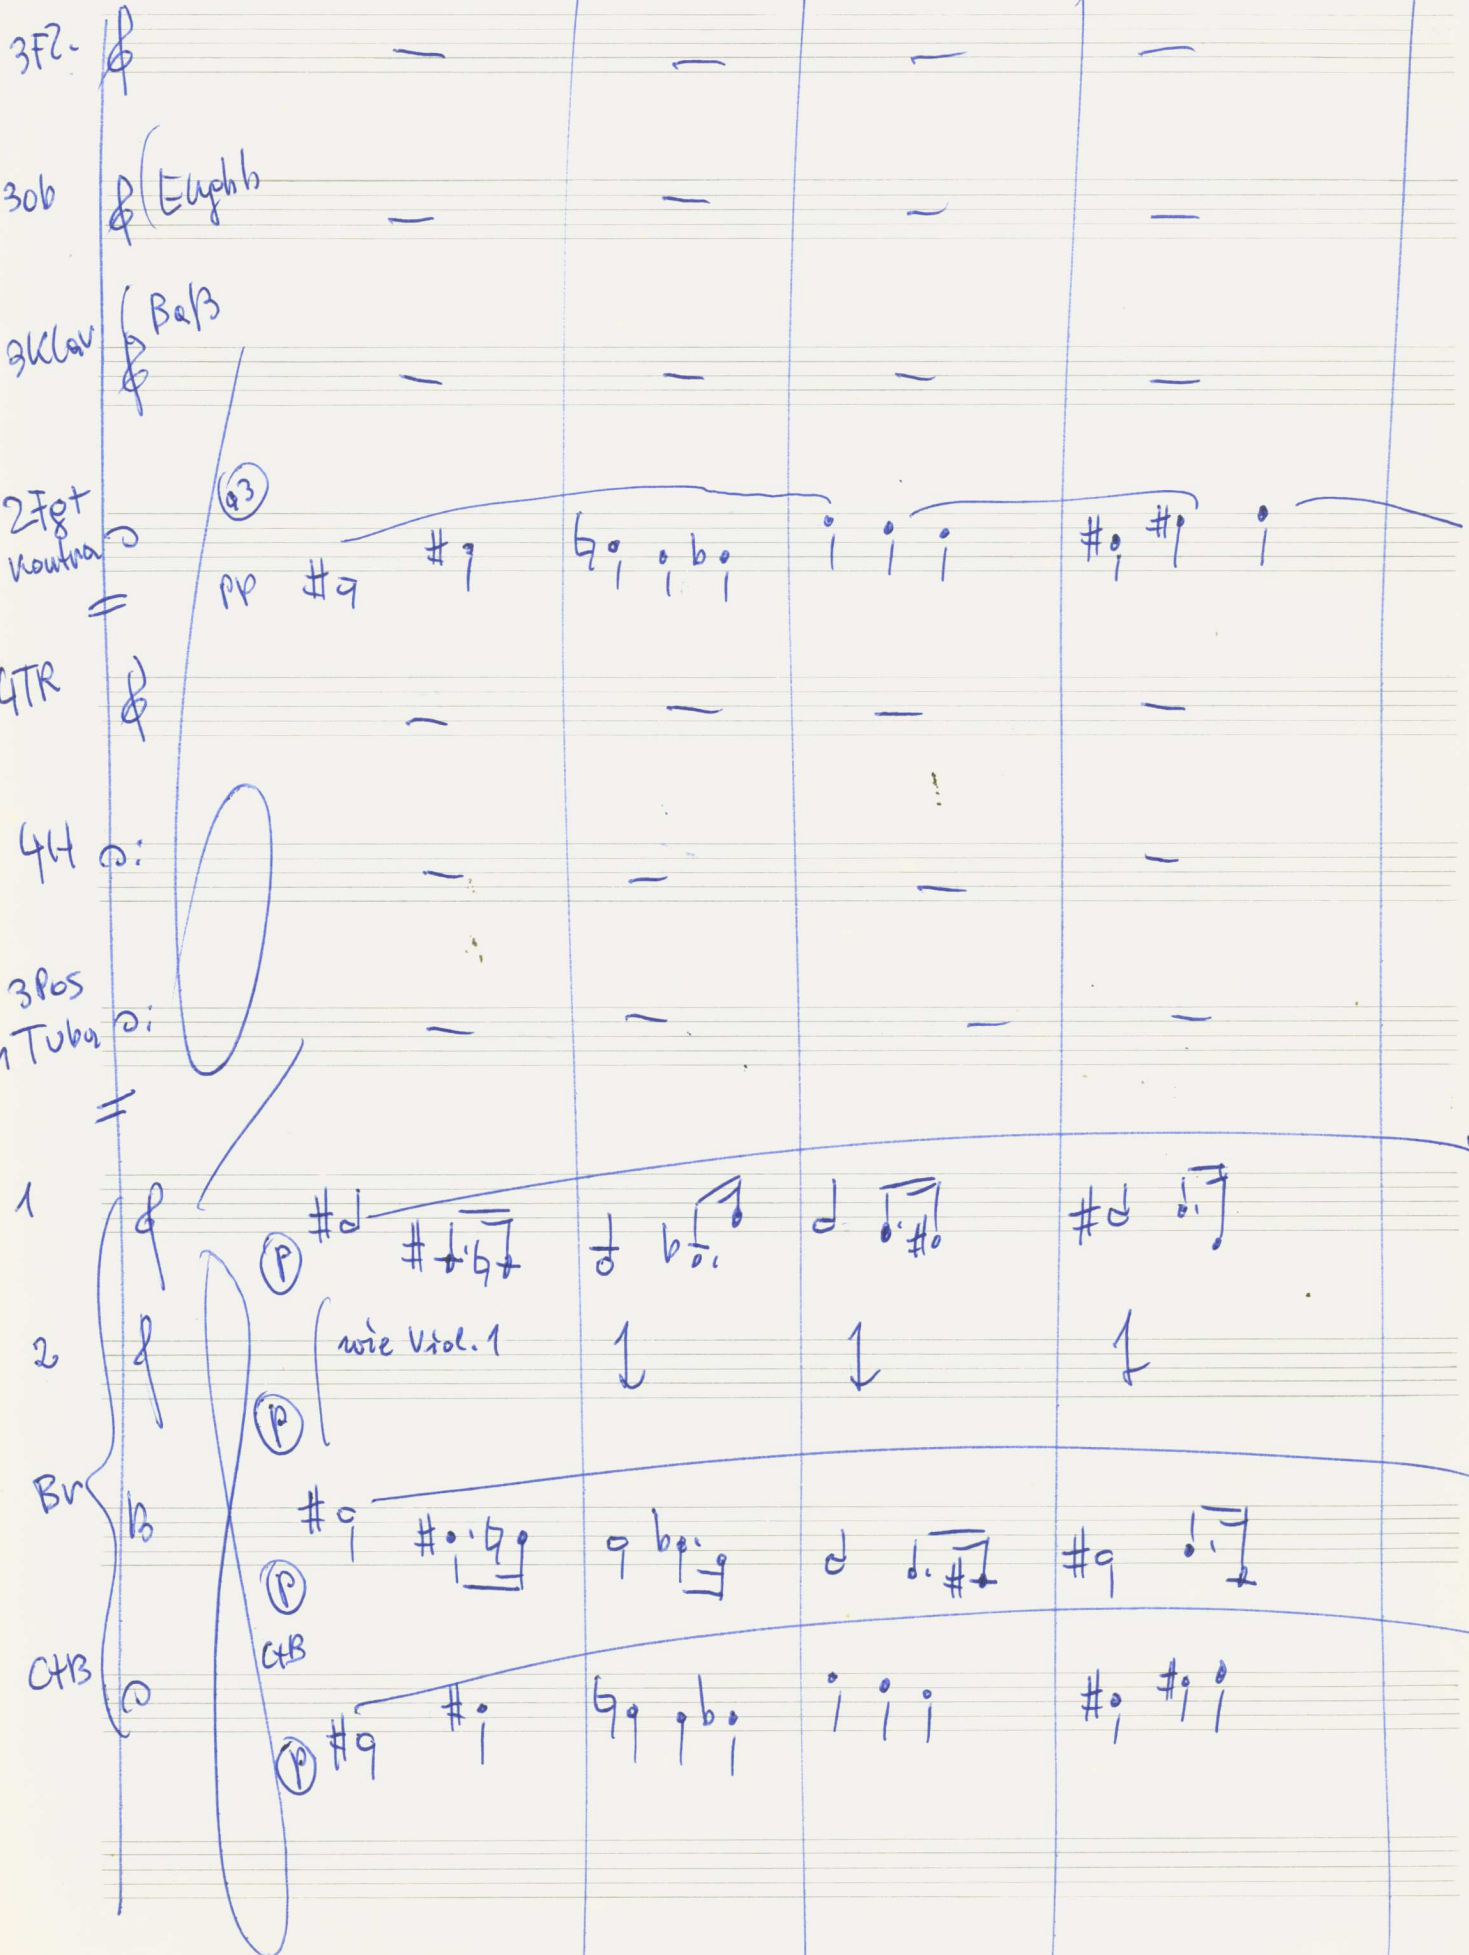 3Fl.
3Ob
3Klar
Baß
a3
2Fg+
Kontra
pp
4TR
4H
3Pos
1Tuba
1
p
2
wie Viol. 1
p
Br
p
C+B
C+B
p